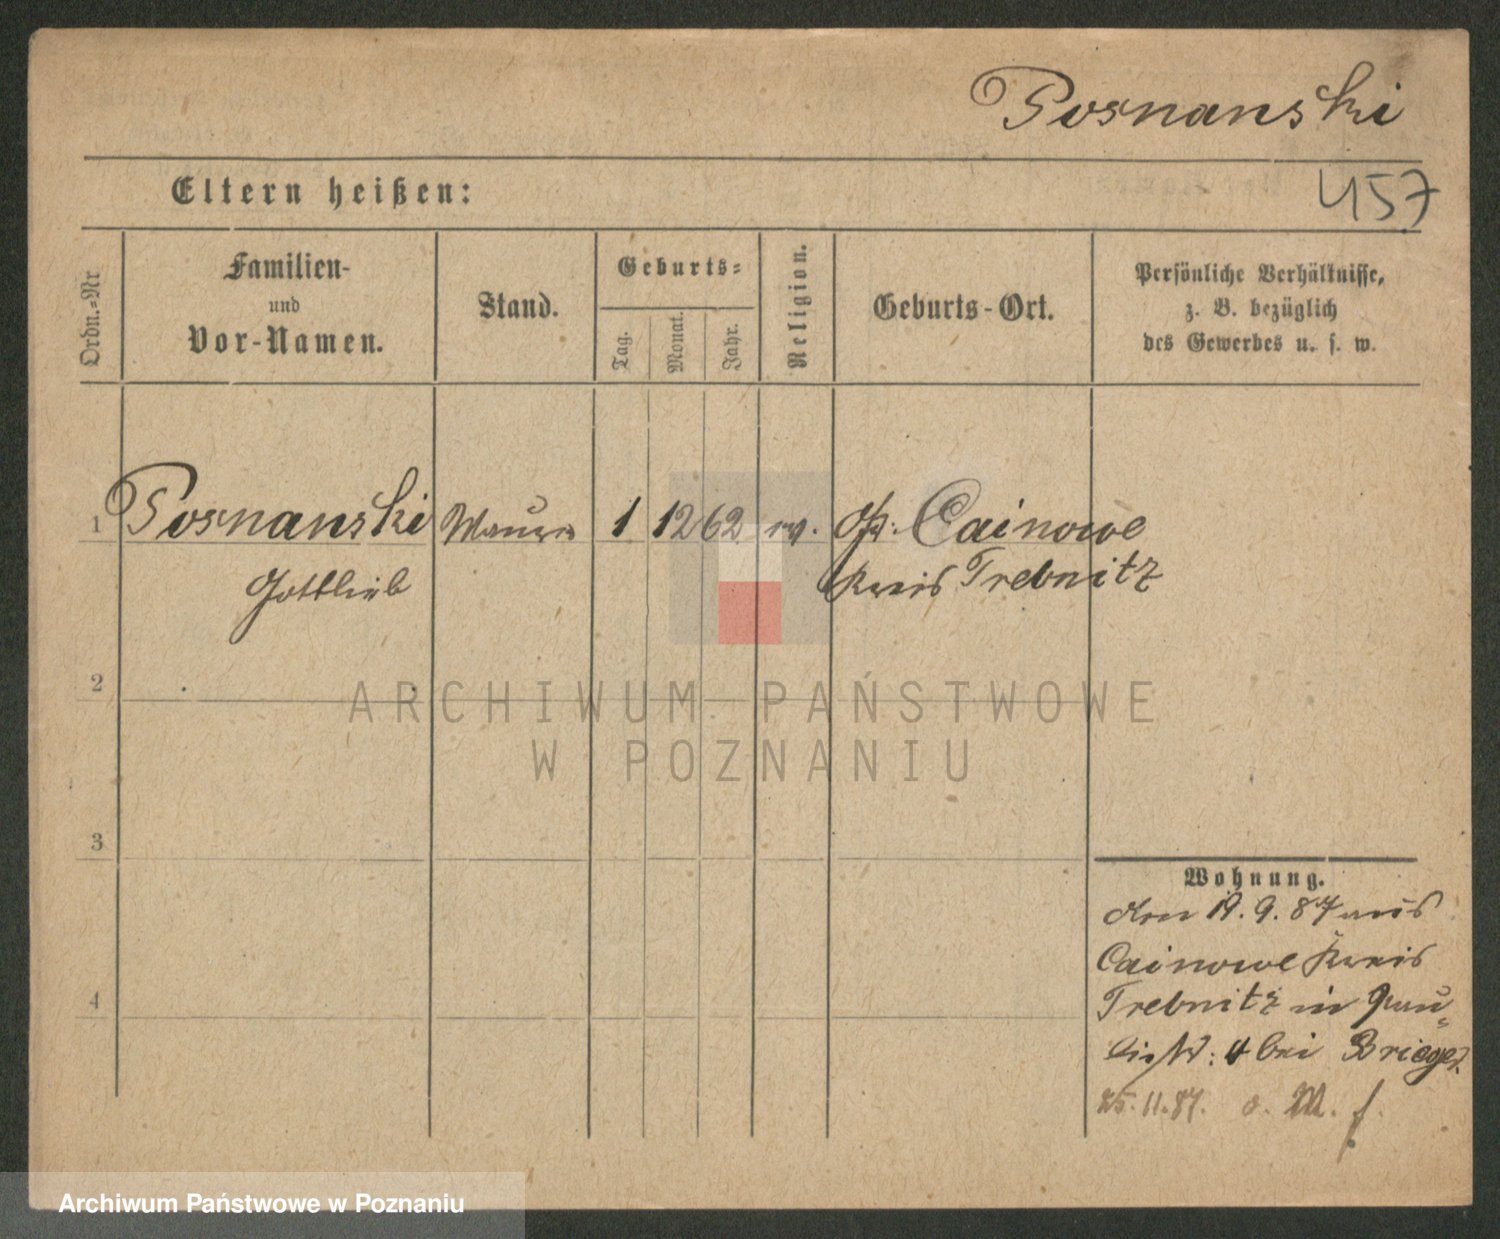 Posnanski
457
Eltern heißen:
Ordn.-Nr
Familien-
und
Vor-Namen.
Stand.
Geburts-
Tag.
Monat.
Jahr.
Religion.
Geburts-Ort.
Persönliche Verhältnisse,
z. B. bezüglich
des Gewerbes u. s. w.
1 Posnanski Maurer 1 12 62 ev. Cainowe
Gottlieb Kreis Trebnitz
2
3
4
Wohnung.
19. 9. 87 aus
Cainowe Kreis
Trebnitz in Pau-
li 4 bei Brieger.
25. 11. 87.
ARCHIWUM PAŃSTWOWE
W POZNANIU
Archiwum Państwowe w Poznaniu